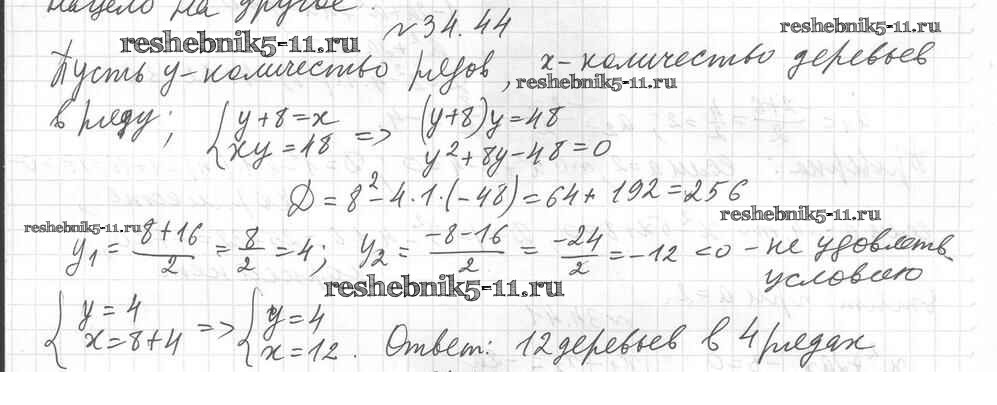 нацело на другое.
№34.44
reshebnik5-11.ru
reshebnik5-11.ru
Пусть y-количество рядов, x-количество деревьев
reshebnik5-11.ru
в ряду; { y+8=x => (y+8)y=48
xy=48 y²+8y-48=0
D=8²-4·1·(-48)=64+192=256
reshebnik5-11.ru
reshebnik5-11.ru
y₁ = -8+16/2 = 8/2 = 4; y₂ = -8-16/2 = -24/2 = -12 <0 - не удовлетв.
условию
reshebnik5-11.ru
{ y=4 => { y=4
x=8+4 x=12. Ответ: 12 деревьев в 4 рядах